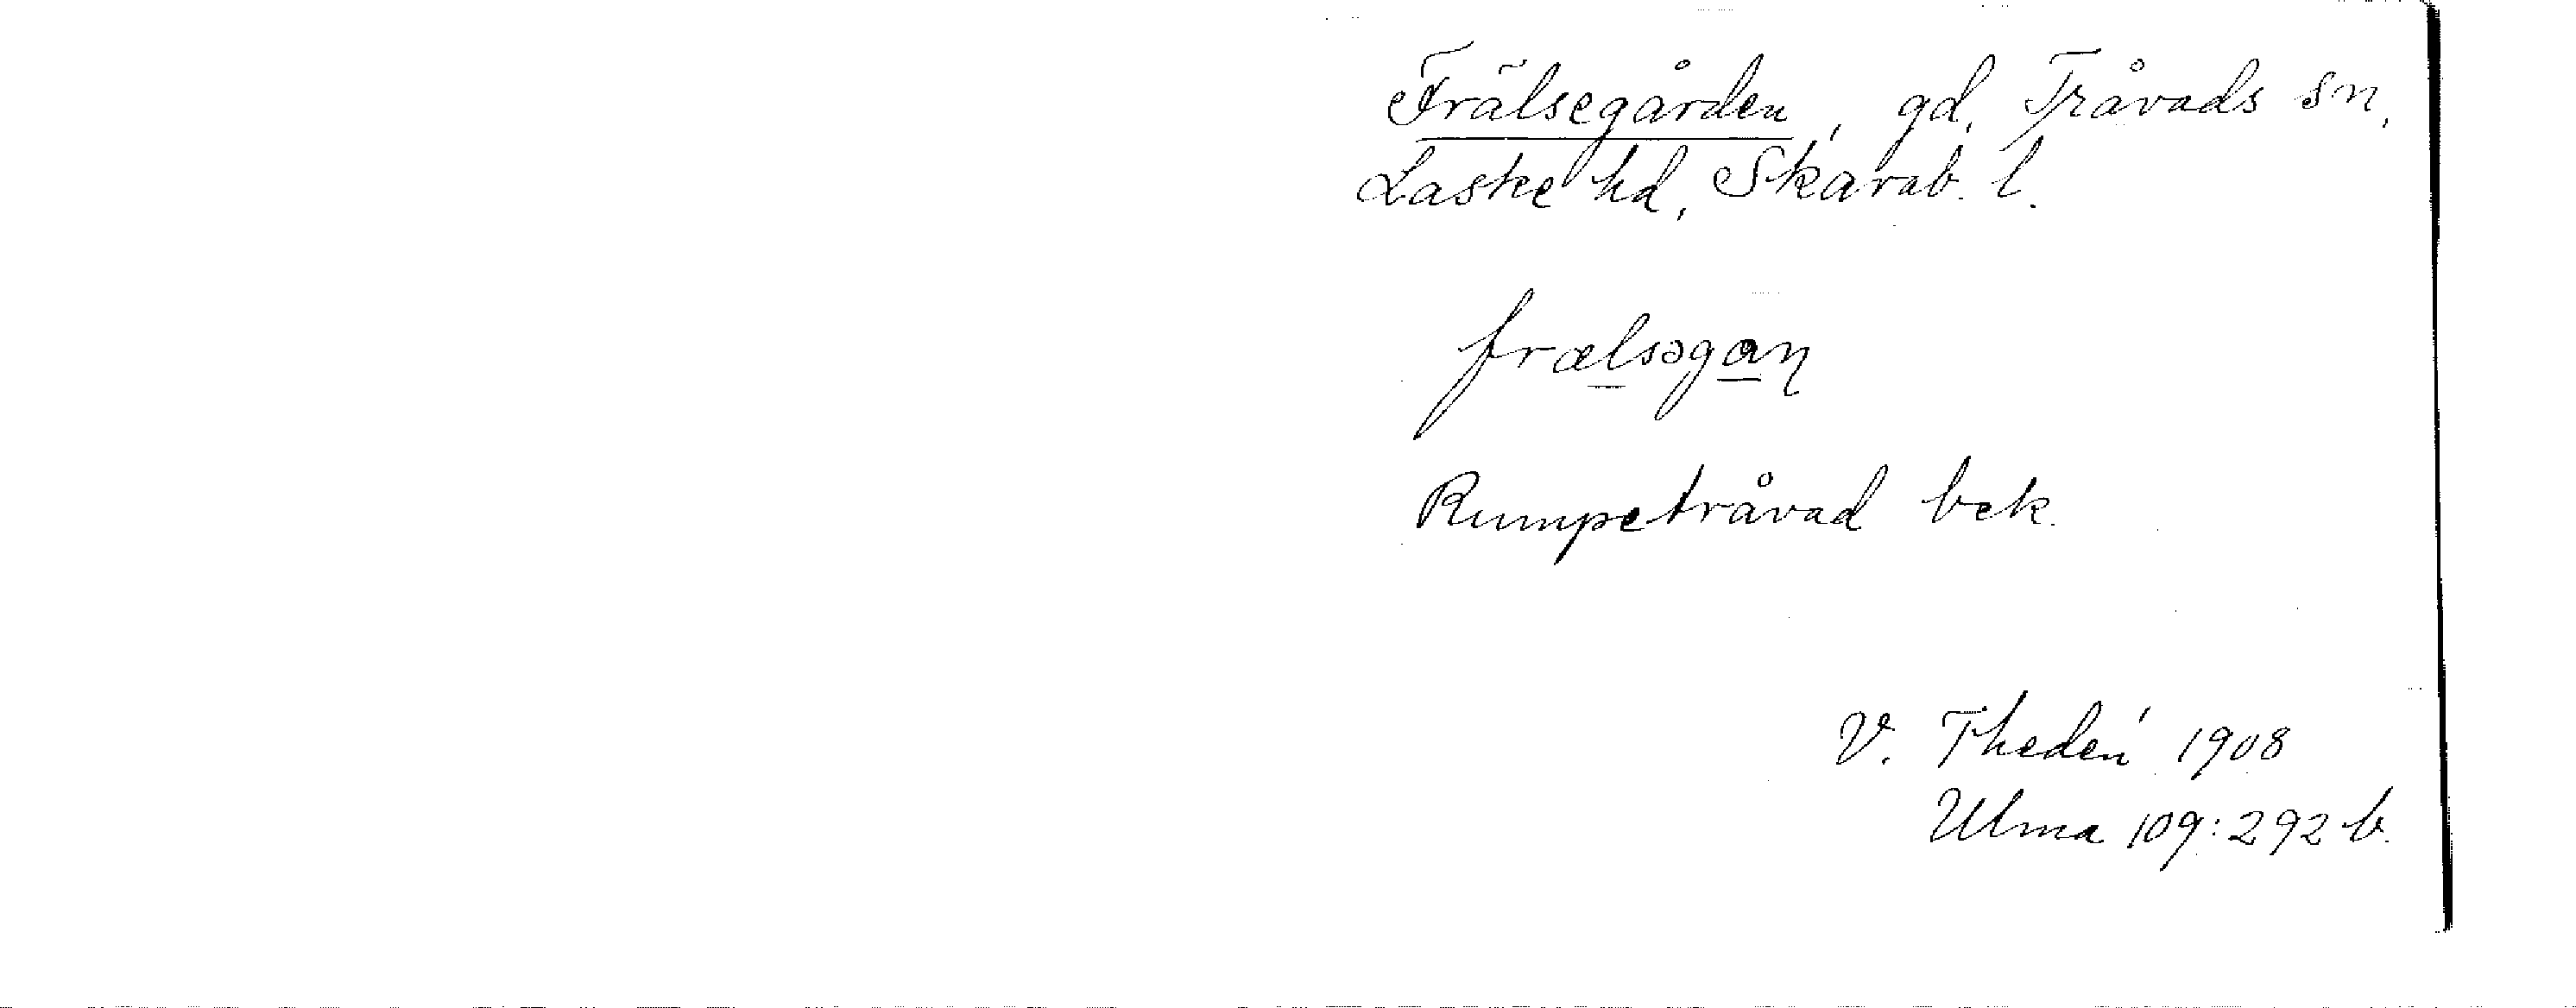 Frälsegården, gd, Tråvads sn,
Laske hd, Skarab. l.
frælsəgaɳ
Rumpetråvad bek.
V. Thedén 1908
Ulma 109:292 b.